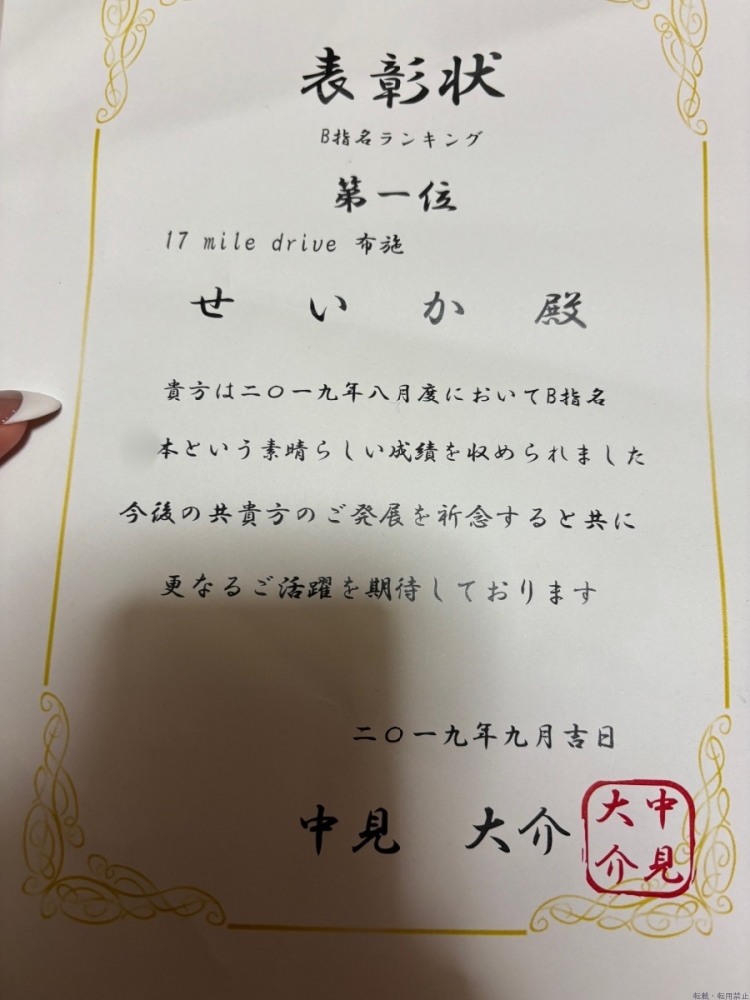 表彰状
B指名ランキング
第一位
17 mile drive 布施
せいか 殿
貴方は二〇一九年八月度においてB指名
本という素晴らしい成績を収められました
今後の共貴方のご発展を祈念すると共に
更なるご活躍を期待しております
二〇一九年九月吉日
中見 大介
中見
大介
転載・転用禁止